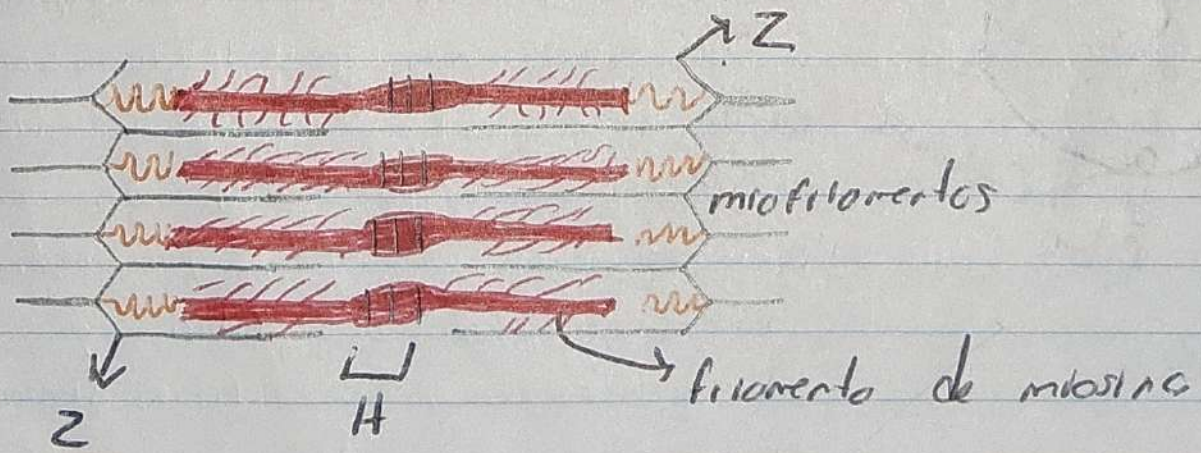 Z
miofilamentos
filamento de miosina
Z
H